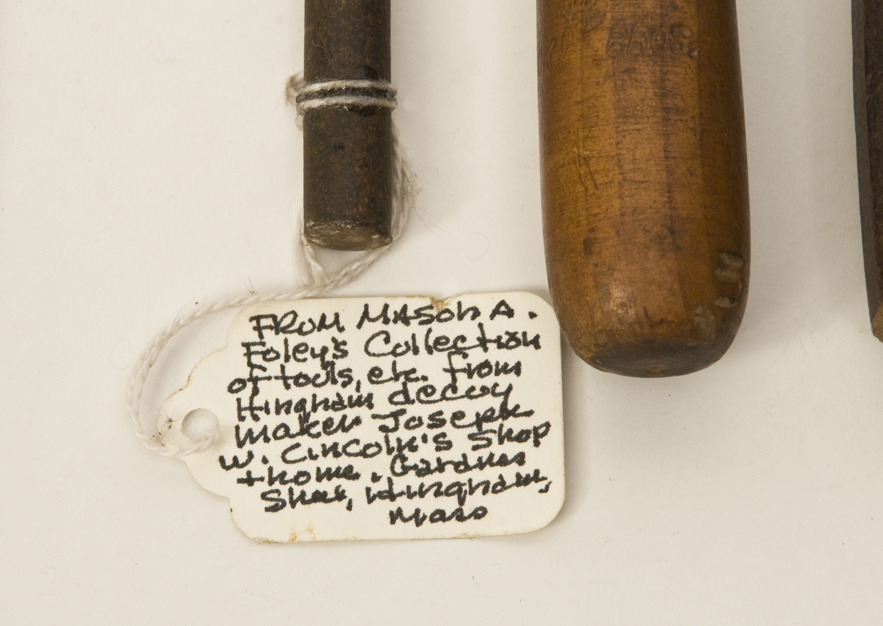 BROS.
FROM MASON A.
Foley's Collection
of tools, etc. from
Hingham decoy
maker Joseph
W. Lincoln's Shop
+ home. Gardner
Street, Hingham,
Mass